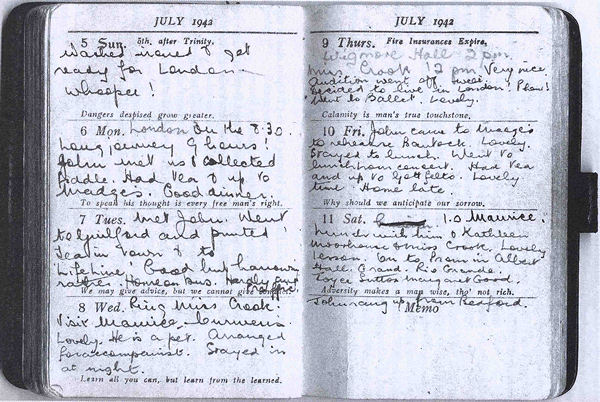 JULY 1942
5 Sun. 5th. after Trinity.
Washed ironed & got
ready for London —
Whoopee!
Dangers despised grow greater.
6 Mon. London on the 8.30.
Long journey 9 hours!
John met us & collected
fiddle. Had tea & up to
Madges. Good dinner.
To speak his thought is every free man's right.
7 Tues. Met John. Went
to Guildford and punted!
Tea in town & to
Lifeline. Good but harrowing
rather. Home on bus. Hardly any
We may give advice, but we cannot give conduct.
8 Wed. Ring Miss Crook.
Visit Maurice
Lovely. He is a pet. Arranged
for accompanist. Stayed in
at night.
Learn all you can, but learn from the learned.
JULY 1942
9 Thurs. Fire Insurances Expire.
Wigmore Hall 2 pm.
Miss Crook 12 pm Very nice
Audition went off
Decided to live in London! Phew!
Went to Ballet. Lovely.
Calamity is man's true touchstone.
10 Fri. John came to Madge's
to rehearse Bantock. Lovely.
Stayed to lunch. Went to
lunch hour concert. Had tea
and up to Lovely
time. Home late.
Why should we anticipate our sorrow.
11 Sat. 1.0 Maurice.
Lunch with him & Kathleen
Moorhouse & Miss Crook. Lovely
lesson. On to Prom in Albert
Hall. Grand. Rio Grande.
Joyce Sutton Margaret Good.
Adversity makes a man wise, tho' not rich.
John rang up from Bedford.
Memo